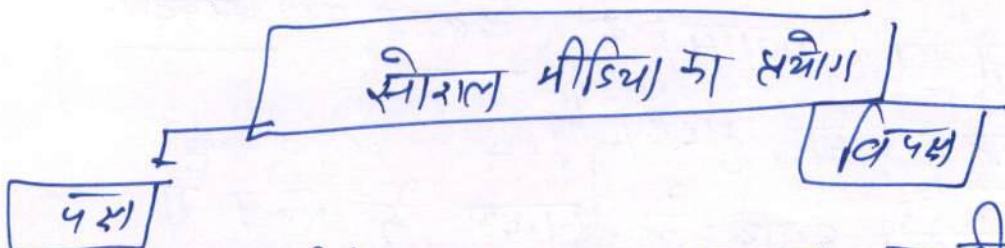 सोशल मीडिया का प्रयोग
विपक्ष
पक्ष